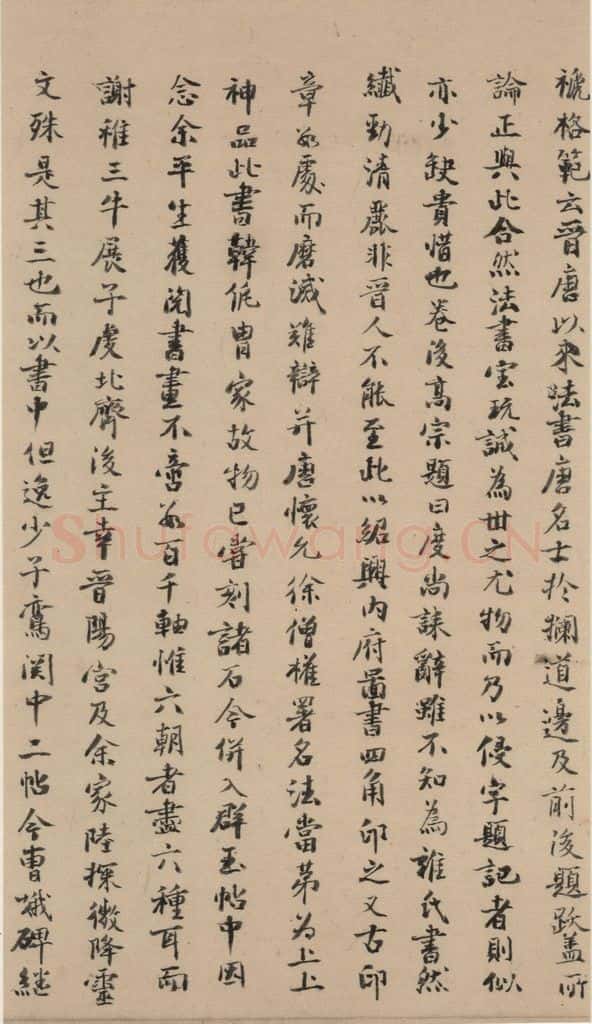 褫格範云晉唐以來法書唐名士於攔道邊及前後題跋蓋所
論正與此合然法書寶玩誠為世之尤物而乃以侵字題記者則似
亦少缺貴惜也卷後高宗題曰度尚誄辭雖不知為誰氏書然
纖勁清麗非晉人不能至此以紹興內府圖書四角印之又古印
章數處而磨滅難辯并唐懷充徐僧權署名法當第為上上
神品此書韓侂胄家故物已嘗刻諸石今併入群玉帖中因
念余平生獲閱書畫不啻數百千軸惟六朝者盡六種耳而
謝稚三牛展子虔北齊後主幸晉陽宮及余家陸探微降靈
文殊是其三也而以書中但逸少子鸞關中二帖今曹娥碑繼
Shufawang.CN